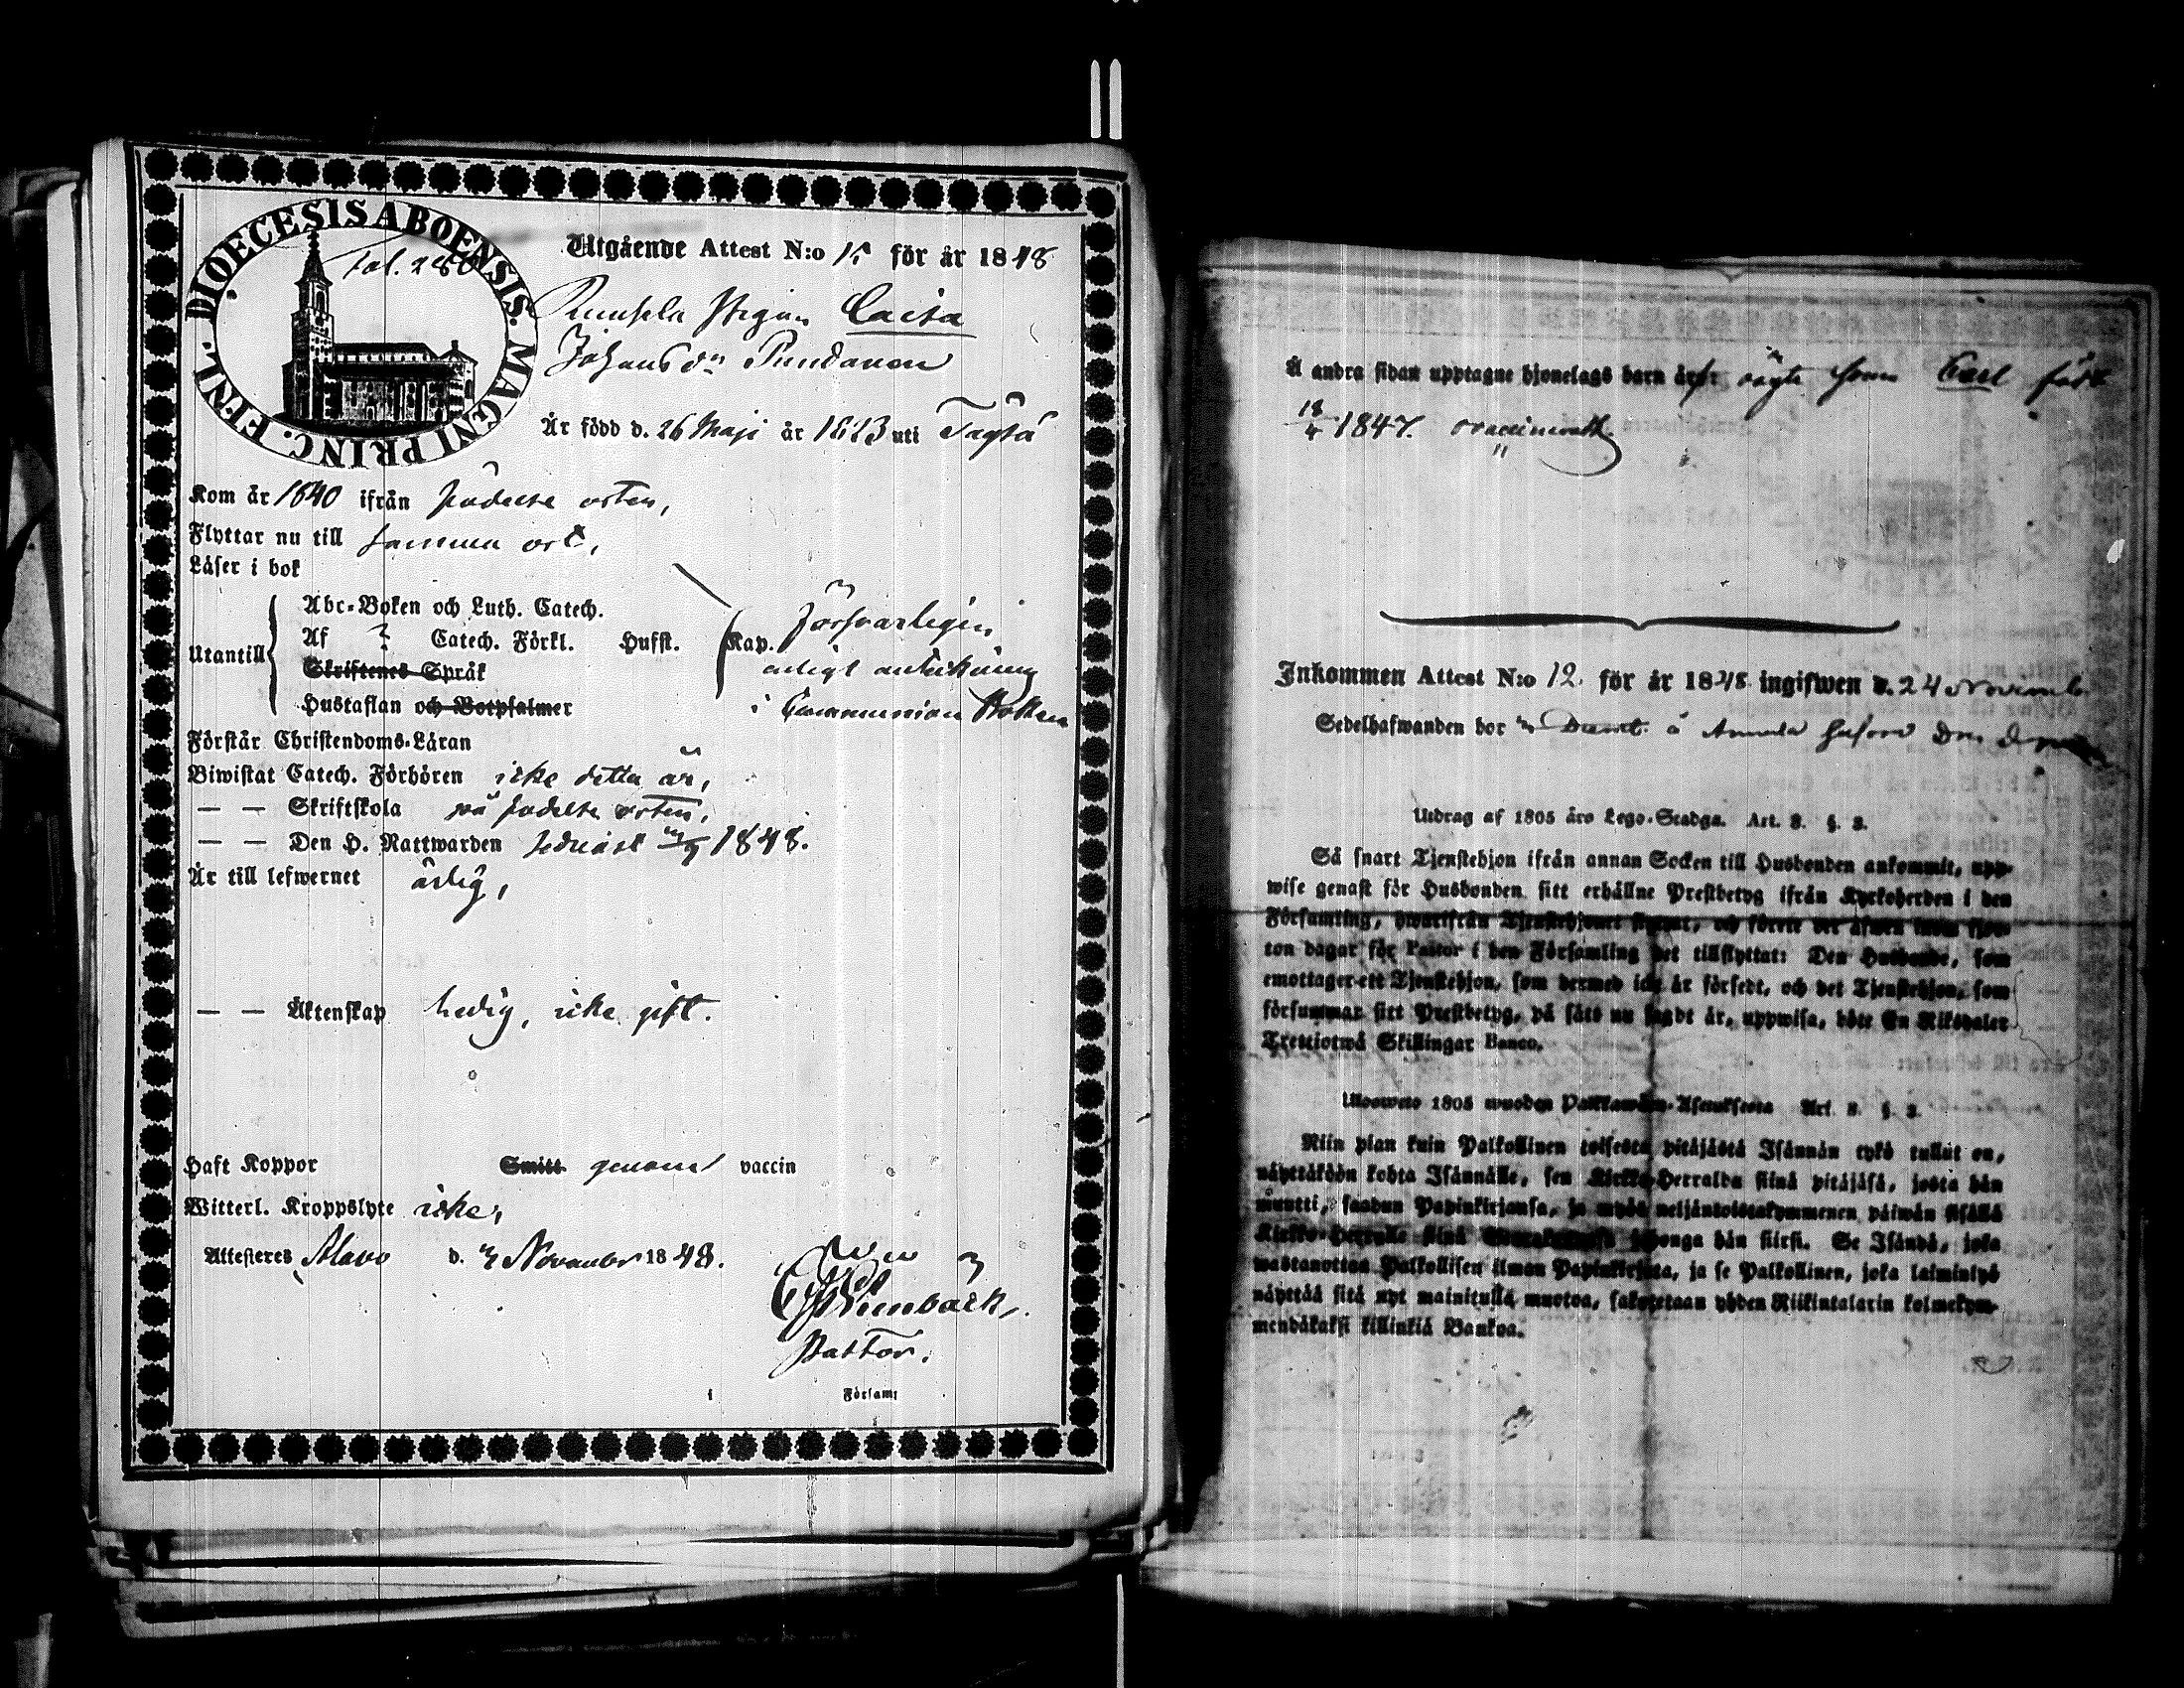 DIOECESIS ABOENSIS. MAGNI PRINC. FINL.
Fol. 280
Utgående Attest N:o 15 för år 1848
Pigan Caisa
Johansdr
Är född d. 26 Maji år 1823 uti Töysä
Kom år 1840 ifrån födelse orten,
Flyttar nu till samma ort,
Läser i bok
Abc-Boken och Luth. Catech.
Utantill Af Catech. Förkl. Hufst. Kap. försvarligen
Skriftenes Språk enligt anteckning
Hustaflan och Botpsalmer i Communion Boken
Förstår Christendoms-Läran
Biwistat Catech. Förhören icke detta år,
— — Skriftskola på födelse orten,
— — Den H. Nattwarden sednast 1848.
Är till lefwernet ärlig,
— — Äktenskap ledig, icke gift.
Haft Koppor Smitt genom vaccin
Witterl. Kroppslyte icke,
Attesteres Alavo d. November 1848.
Pastor.
i Församl
Å andra sidan upptagne hjonelags barn äro: oägte Son Carl född
18/4 1847. vaccineradt.
Inkommen Attest N:o 12. för år 1848 ingifwen d. 24 Novemb.
Sedelhafwanden bor å Annala
Utdrag af 1805 års Lego-Stadga. Art. 8. §. 3.
Så snart Tjenstehjon ifrån annan Socken till Husbonden ankommit, upp-
wise genast för Husbonden sitt erhållne Prestbetyg ifrån Kyrkoherden i den
Församling, hwarifrån Tjenstehjonet flyttat, och förete det äfwen inom fjor-
ton dagar för Pastor i den Församling det tillflyttat: Den Husbonde, som
emottager ett Tjenstehjon, som dermed icke är försedt, och det Tjenstehjon, som
försummar sitt Prestbetyg, på sätt nu sagdt är, uppwisa, böte En Riksdaler
Trettiotwå Skillingar Banco.
Uloswето 1805 wuoden Palkkawäen-Asetuksesta Art. 8. §. 3.
Niin pian kuin Palkollinen toisesta pitäjästä Isännän tykö tullut on,
näyttäköön kohta Isännälle, sen Kirkko-Herralda siinä pitäjäsä, josta hän
muutti, saadun Papinkirjansa, ja myös neljäntoistakymmenen päiwän sisällä
Kirkko-Herralle siinä johonga hän siirsi. Se Isändä, joka
wastanottaa Palkollisen ilman Papinkirjata, ja se Palkollinen, joka laiminlyö
näyttää sitä nyt mainitulla muotoa, sakotetaan yhden Riikintalarin kolmekym-
mendäkaksi killinkiä Bankoa.